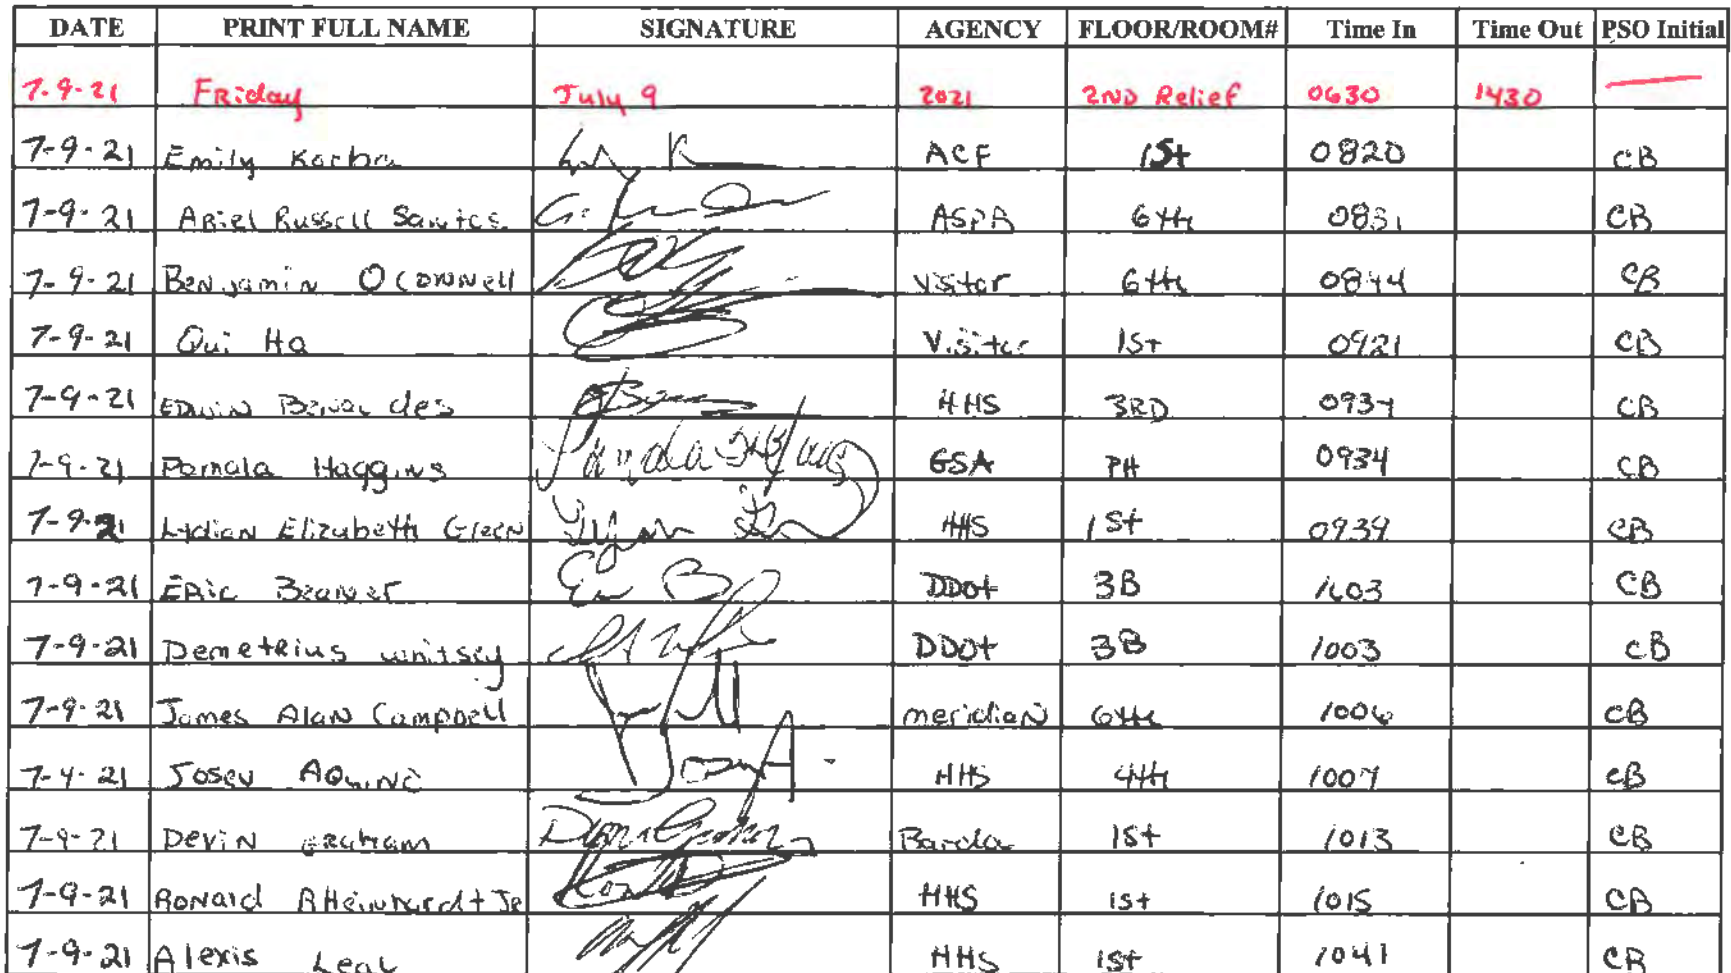 DATE PRINT FULL NAME SIGNATURE AGENCY FLOOR/ROOM# Time In Time Out PSO Initial
7-9-21 Friday July 9 2021 2ND Relief 0630 1430
7-9-21 Emily ACF 1St 0820 CB
7-9-21 Ariel Russell ASPR 6th 0831 CB
7-9-21 Benjamin OConnell Visitor 6th 0844 CB
7-9-21 Qui Ha Visitor 1St 0921 CB
7-9-21 EDWIN HHS 3RD CB
7-9-21 Pamala Haggins GSA PH 0934 CB
7-9-21 Lydian Elizabeth Green HHS 1St 0939 CB
7-9-21 ERic DDOt 3B CB
7-9-21 DemetRius DDOt 3B 1003 CB
7-9-21 James Alan Campbell meridian 6th 1006 CB
Aquino HHS 4th CB
7-9-21 Devin Barda 1St 1013 CB
7-9-21 Ronald HHS 1St 1015 CB
7-9-21 Alexis Leal HHS 1St 1041 CB